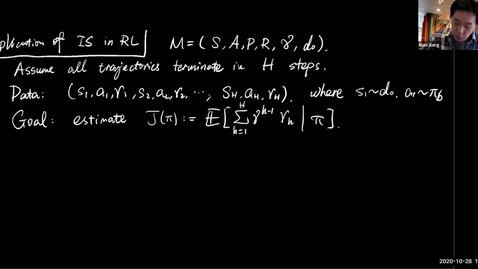 plication of IS in RL M = (S, A, P, R, γ, d₀).
Assume all trajectories terminate in H steps.
Data: (s₁, a₁, r₁, s₂, a₂, r₂, ⋯, s_H, a_H, r_H). where s₁~d₀, a₁~π_b
Goal: estimate J(π) := 𝔼[∑_{h=1}^{H} γ^{h-1} r_h | π].
Nan Jiang
2020-10-28 1